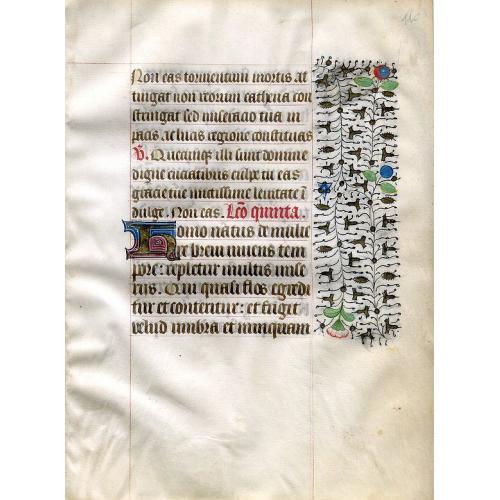 Non eas tormentum mortis at
tingat non reorum cathena con
stringat sed miseracio tua in
pacis ac lucis regione constituas
V. Quecunqz illi sunt domine
digne cruciatibus culpe tu eas
gracie tue mitissime lenitate i
dulge. Non eas. Lco quinta.
Homo natus de mulie
re breui uiuens tem
pore: repletur multis mise
riis. Qui quasi flos egredi
tur et conteritur: et fugit
velud umbra et nunquam